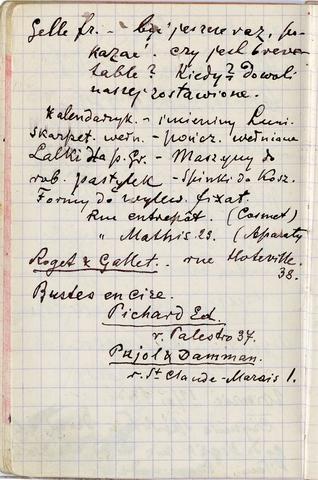 Gelle fr. – być jeszcze raz, po-
kazać. czy jest breve-
table? Kiedy? dowoli
naszej zostawione.
Kalendarzyk. – imieniny Luni.
skarpet. wełn. – pończ. wełniane
Lalki dla p. Gr. – Maszyny do
rob. pastylek – Spinki do kosz.
Formy do wylew. fixat.
Rue entrepôt. (Cosmet)
" Mathis 23. (Aparaty
Roget & Gallet. rue Hoteville.
38.
Bustes en cire.
Pichard Ed.
r. Palestro 37.
Pujol & Damman.
r. St Claude-Marais 1.